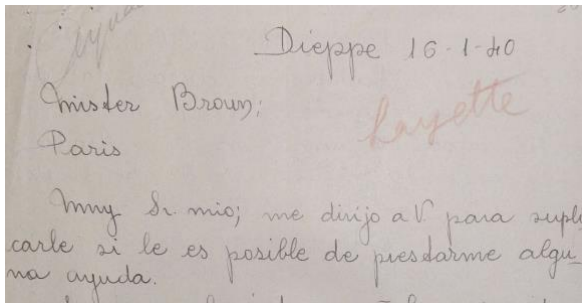 Ayuda
Dieppe 16-1-40
Mister Broun;
Layette
Paris
Muy Sr. mio; me dirijo a V. para supli
carle si le es posible de prestarme algu_
na ayuda.